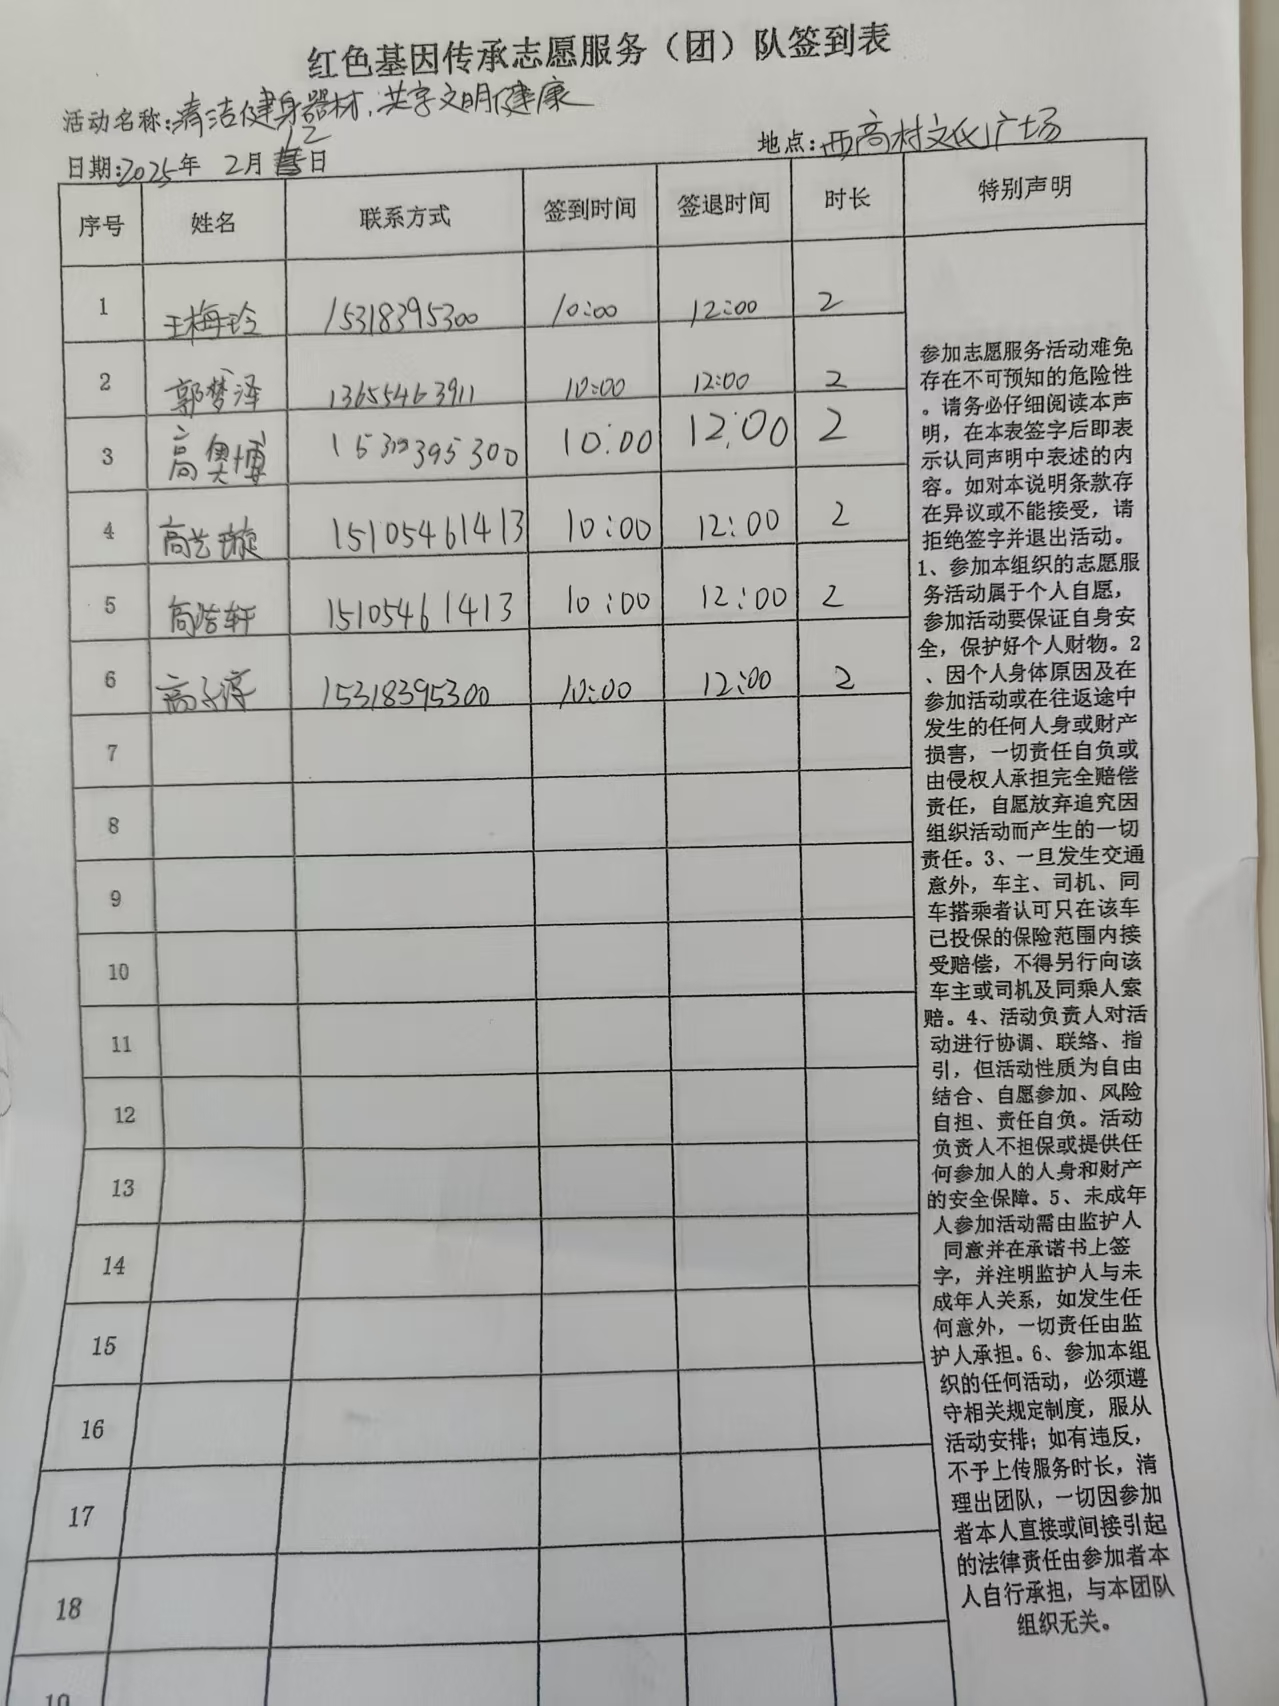 红色基因传承志愿服务（团）队签到表
活动名称:清洁健身器材,共享文明健康
日期:2025年 2月12日
地点:西高村文化广场
序号 姓名 联系方式 签到时间 签退时间 时长 特别声明
1 王梅玲 15318395300 10:00 12:00 2
2 郭梦泽 13655463911 10:00 12:00 2
3 高奥博 15318395300 10:00 12:00 2
4 高艺璇 15105461413 10:00 12:00 2
5 高浩轩 15105461413 10:00 12:00 2
6 高子淳 15318395300 10:00 12:00 2
7
8
9
10
11
12
13
14
15
16
17
18
19
参加志愿服务活动难免
存在不可预知的危险性
。请务必仔细阅读本声
明，在本表签字后即表
示认同声明中表述的内
容。如对本说明条款存
在异议或不能接受，请
拒绝签字并退出活动。
1、参加本组织的志愿服
务活动属于个人自愿，
参加活动要保证自身安
全，保护好个人财物。2
、因个人身体原因及在
参加活动或在往返途中
发生的任何人身或财产
损害，一切责任自负或
由侵权人承担完全赔偿
责任，自愿放弃追究因
组织活动而产生的一切
责任。3、一旦发生交通
意外，车主、司机、同
车搭乘者认可只在该车
已投保的保险范围内接
受赔偿，不得另行向该
车主或司机及同乘人索
赔。4、活动负责人对活
动进行协调、联络、指
引，但活动性质为自由
结合、自愿参加、风险
自担、责任自负。活动
负责人不担保或提供任
何参加人的人身和财产
的安全保障。5、未成年
人参加活动需由监护人
同意并在承诺书上签
字，并注明监护人与未
成年人关系，如发生任
何意外，一切责任由监
护人承担。6、参加本组
织的任何活动，必须遵
守相关规定制度，服从
活动安排；如有违反，
不予上传服务时长，清
理出团队，一切因参加
者本人直接或间接引起
的法律责任由参加者本
人自行承担，与本团队
组织无关。